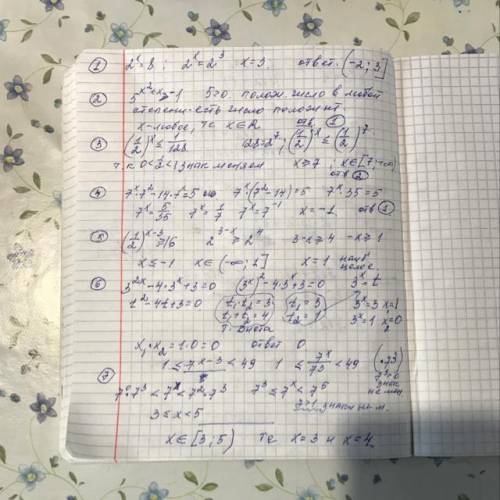 ① 2ˣ=8 ; 2ˣ=2³ x=3 ответ. (-2; 3]
② 5^(x²+x)>-1 5>0 полож. число в любой
степени-есть число положит
x-любое, те x∈R отв ①
③ (1/2)ˣ ≤ 1/128 128=2⁷ ; (1/2)ˣ ≤ (1/2)⁷
т.к 0<1/2<1 знак меняем x≥7 ; x∈[7;+∞)
отв ②
④ 7ˣ·7²-14·7ˣ=5 7ˣ(7²-14)=5 7ˣ·35=5
7ˣ=5/35 7ˣ=1/7 7ˣ=7⁻¹ x=-1 отв ①
⑤ (1/2)^(x-3) ≥16 2^(3-x) ≥2⁴ 3-x≥4 -x≥1
x≤-1 x∈(-∞; x=1 наиб
целое
⑥ 3^(2x)-4·3ˣ+3=0 (3ˣ)²-4·3ˣ+3=0 3ˣ=t
t²-4t+3=0 t₁·t₂=3 t₁=3 3ˣ=3 x=1
t₁+t₂=4 t₂=1 3ˣ=1 x₂=0
т. Виета
x₁·x₂=1·0=0 ответ 0
1≤7^(x-3)<49 1≤7ˣ/7³<49 (·7³)
7³>0
знак
не мен
⑦ 7⁰·7³≤7ˣ<7²·7³ 7³≤7ˣ<7⁵
7>1 знаки не м.
3≤x<5
x∈[3; 5) те x=3 и x=4